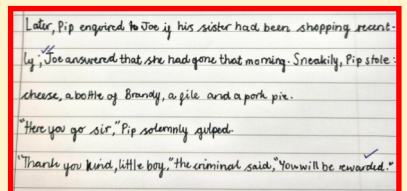 Later, Pip enquired to Joe if his sister had been shopping recent-
ly; Joe answered that she had gone that morning. Sneakily, Pip stole:
cheese, a bottle of Brandy, a file and a pork pie.
"Here you go sir," Pip solemnly gulped.
"Thank you kind, little boy," the criminal said, "You will be rewarded."